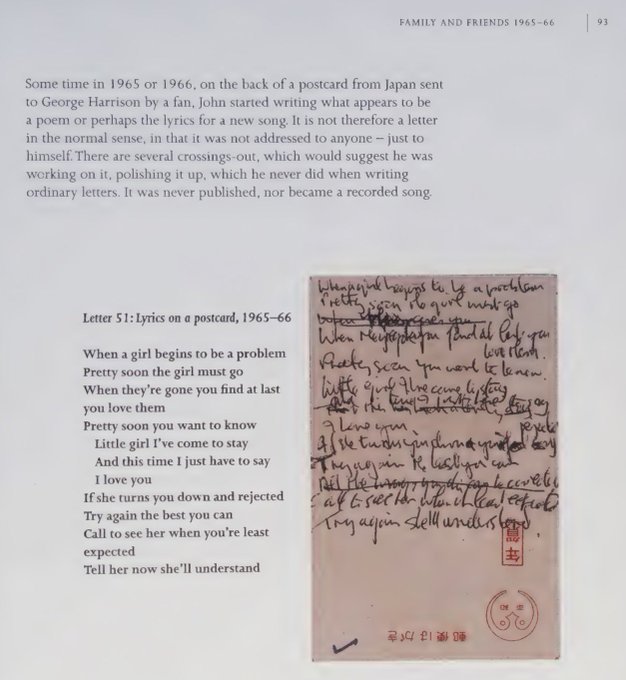 FAMILY AND FRIENDS 1965–66 | 93
Some time in 1965 or 1966, on the back of a postcard from Japan sent
to George Harrison by a fan, John started writing what appears to be
a poem or perhaps the lyrics for a new song. It is not therefore a letter
in the normal sense, in that it was not addressed to anyone – just to
himself. There are several crossings-out, which would suggest he was
working on it, polishing it up, which he never did when writing
ordinary letters. It was never published, nor became a recorded song.
Letter 51: Lyrics on a postcard, 1965–66
When a girl begins to be a problem
Pretty soon the girl must go
When they're gone you find at last
you love them
Pretty soon you want to know
Little girl I've come to stay
And this time I just have to say
I love you
If she turns you down and rejected
Try again the best you can
Call to see her when you're least
expected
Tell her now she'll understand
When a girl begins to be a problem
Pretty soon the girl must go
When
When you find at last you
love them.
Pretty soon you want to know.
Little girl I've come to stay
I love you
If she turns you down
Try again the best you can
Call to see her when
Try again she'll understand
年賀
郵便はがき